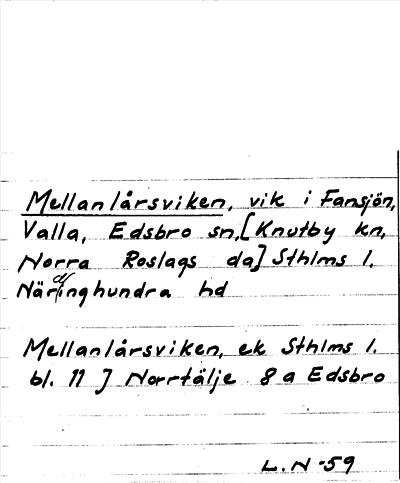 Mellanlårsviken, vik i Fansjön,
Valla, Edsbro sn, [Knutby kn,
Norra Roslags da] Sthlms l.
Närdinghundra hd
Mellanlårsviken, ek Sthlms l.
bl. 11 J Norrtälje 8 a Edsbro
L. N -59